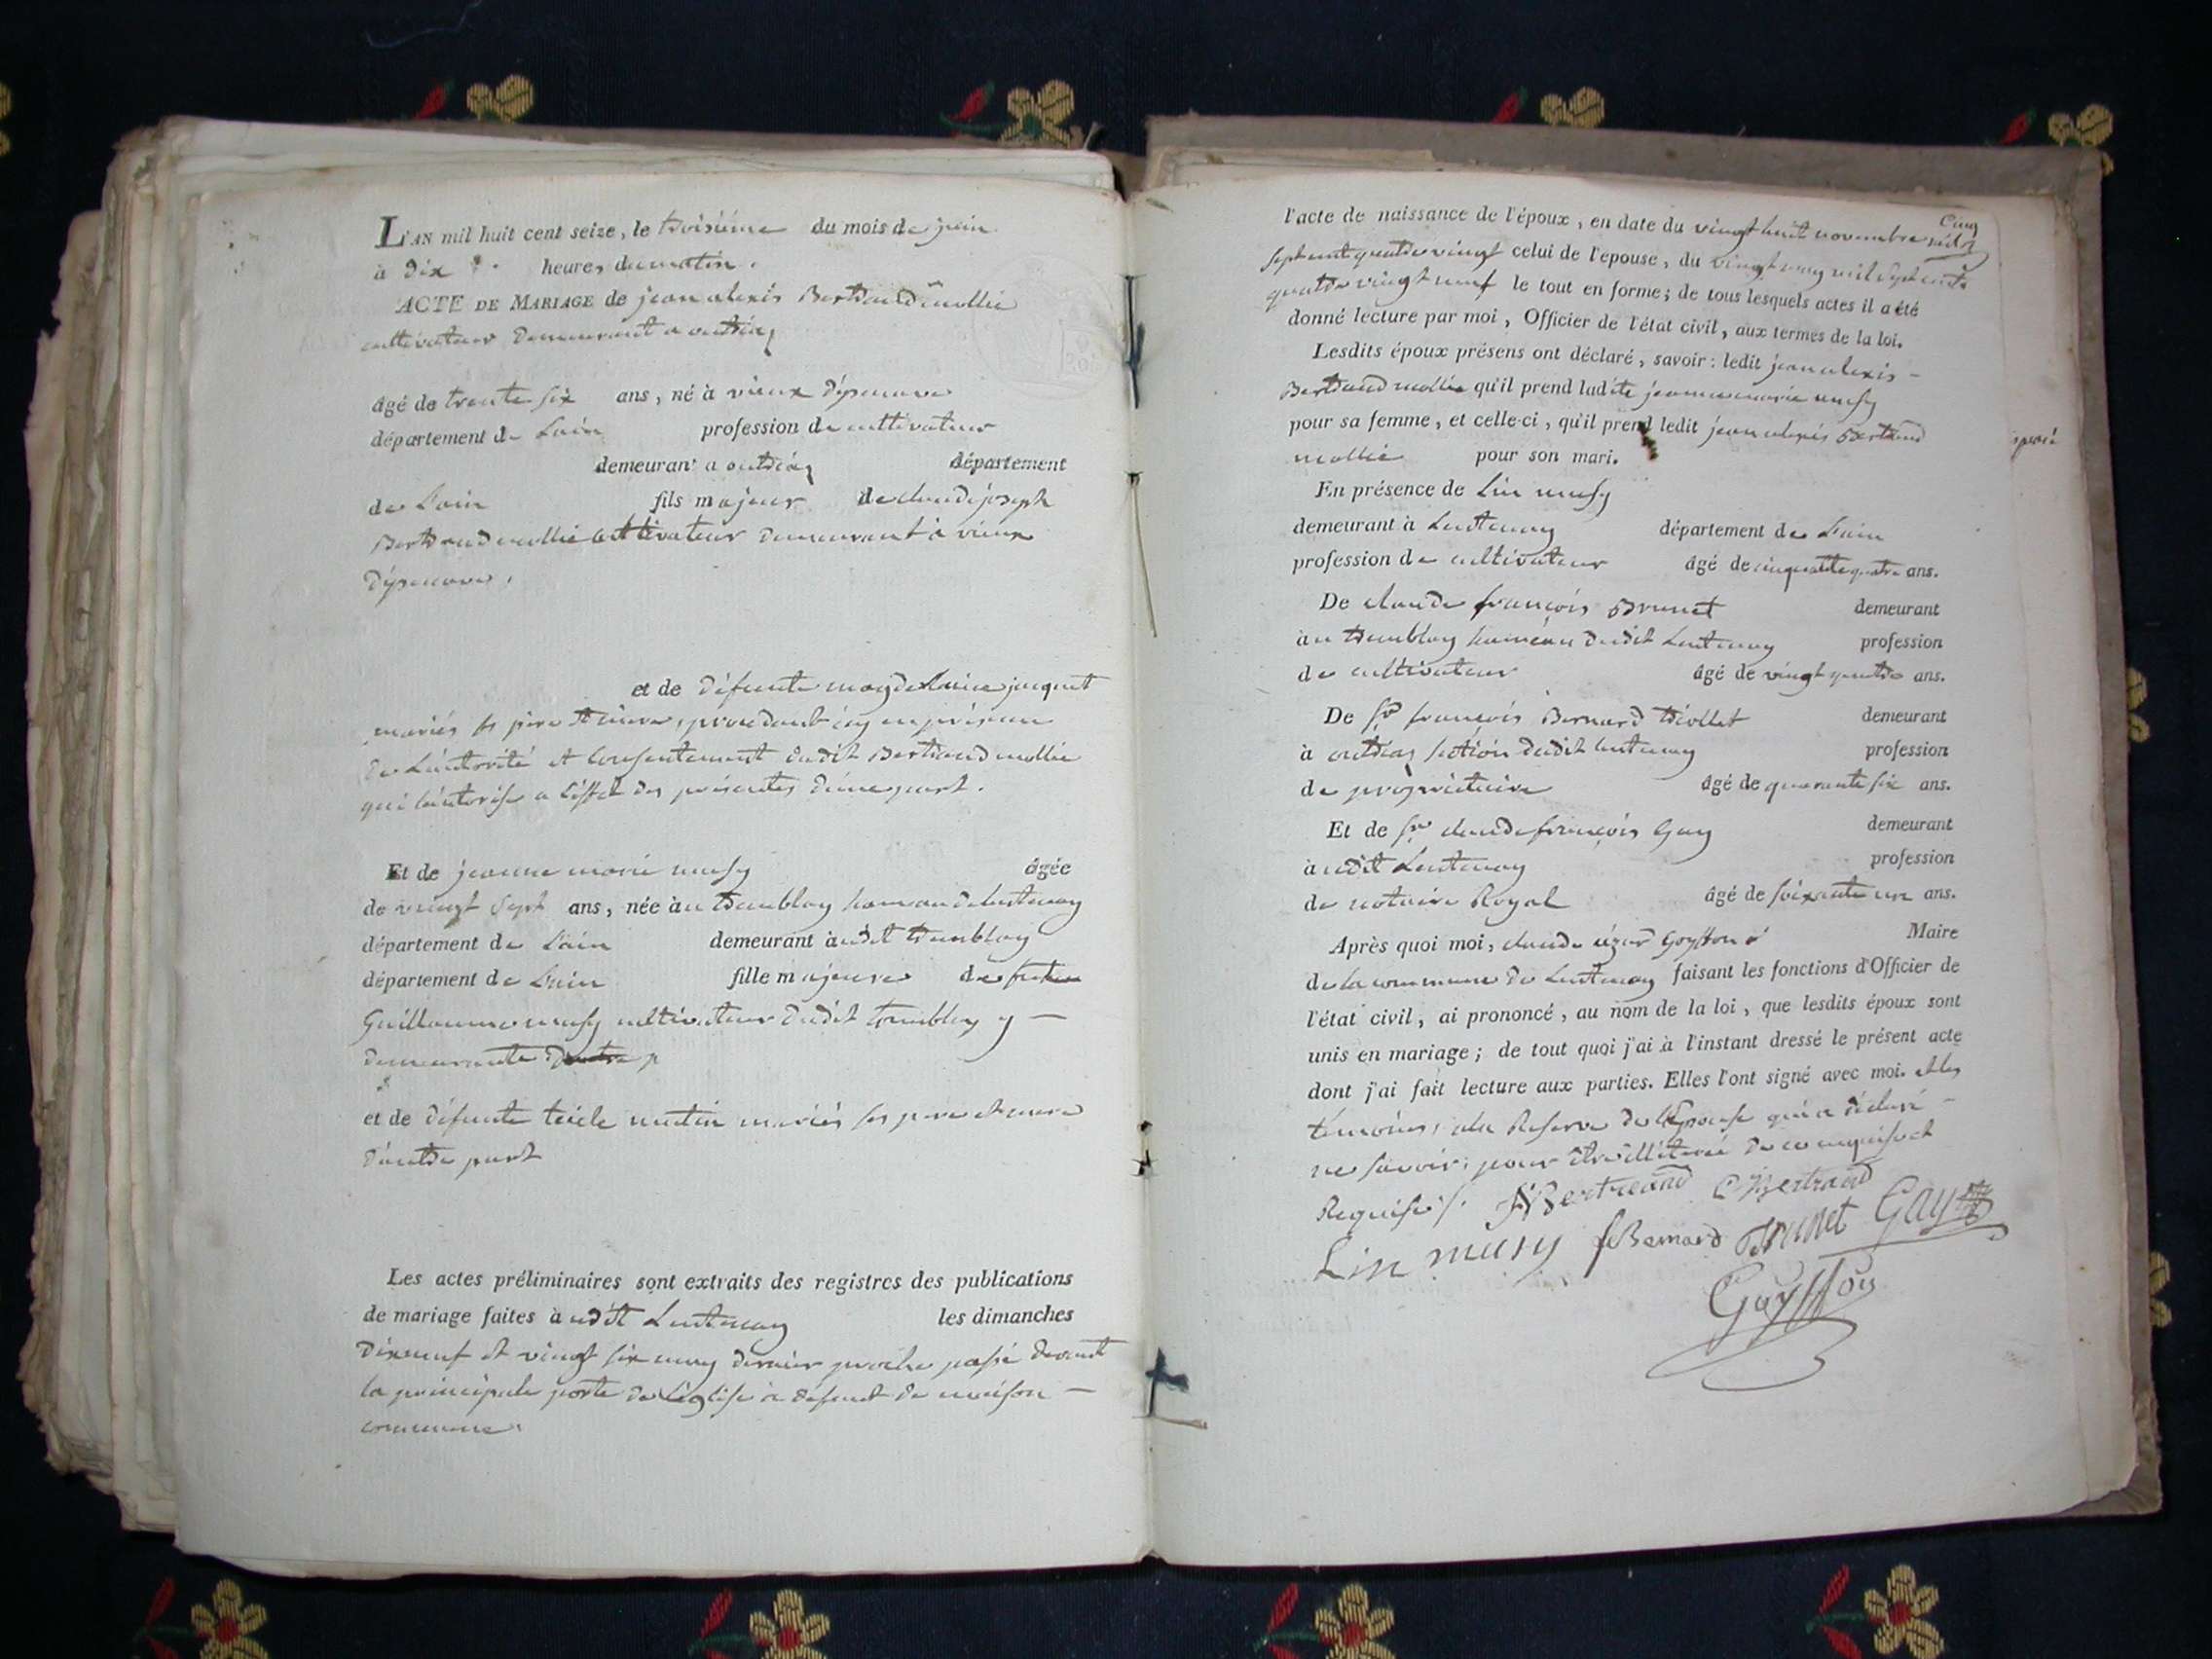 L'AN mil huit cent seize, le troisieme du mois de juin
à dix heures du matin.
ACTE DE MARIAGE de jean alexis Bertrand mollie
cultivateur demeurant a outriaz
âgé de trente six ans, né à vieux d'izenave
département de Lain profession de cultivateur
demeurant a outriaz département
de Lain fils majeur de claude joseph
Bertrand mollie cultivateur demeurant à vieux
d'izenave.
et de défunte magdelaine jacquet
mariés ses pere et mere, procedant icy en présence
de Lautorité et consentement dudit Bertrand mollie
qui lautorise a Leffet des présentes d'une part.
Et de jeanne marie musy âgée
de vingt sept ans, née au tremblay hameau de Lantenay
département de Lain demeurant audit tremblay
département de Lain fille majeure de
Guillaume musy cultivateur dudit tremblay y
demeurante
et de défunte mariés ses pere et mere
d'autre part
Les actes préliminaires sont extraits des registres des publications
de mariage faites audit Lantenay les dimanches
dixneuf et vingt six may dernier proche passé devant
la principale porte de Léglise a défaut de maison
commune.
Cinq
l'acte de naissance de l'époux, en date du vingt huit novembre mil
sept cent quatre vingt celui de l'épouse, du vingt may mil sept cent
quatre vingt neuf le tout en forme; de tous lesquels actes il a été
donné lecture par moi, Officier de l'état civil, aux termes de la loi.
Lesdits époux présens ont déclaré, savoir: ledit jean alexis
Bertrand mollie qu'il prend ladite jeanne marie musy
pour sa femme, et celle-ci, qu'il prend ledit jean alexis Bertrand
mollie pour son mari.
En présence de Lin musy
demeurant à Lantenay département de Lain
profession de cultivateur âgé de cinquante quatre ans.
De claude françois Brunet demeurant
au tremblay hameau dudit Lantenay profession
de cultivateur âgé de vingt quatre ans.
De Sr françois Bernard demeurant
à outriaz section dudit Lantenay profession
de propriétaire âgé de quarante six ans.
Et de Sr claude françois Guy demeurant
audit Lantenay profession
de notaire Royal âgé de soixante un ans.
Après quoi moi, claude cézar Goyffon Maire
de la commune de Lantenay faisant les fonctions d'Officier de
l'état civil, ai prononcé, au nom de la loi, que lesdits époux sont
unis en mariage; de tout quoi j'ai à l'instant dressé le présent acte
dont j'ai fait lecture aux parties. Elles l'ont signé avec moi. et les
témoins, a la Reserve de l'Epouse qui a déclaré
ne savoir, pour être illiterée de ce enquise et
Requise. Bertreand C Bertrand
Lin musy Bernard Brunet Guy
Goyffon